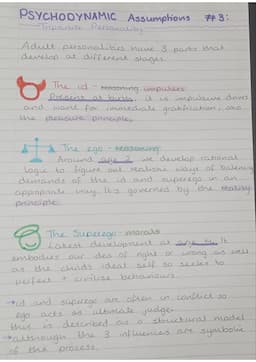 PSYCHODYNAMIC Assumptions #3:
Tripartite Personality
Adult personalities have 3 parts that
develop at different stages.
The id - reasoning impulses
Present at birth, it is impulsive drives
and want for immediate gratification, aka
the pleasure principle.
The ego - reasoning
Around age 2 we develop rational
logic to figure out realistic ways of balancing
demands of the id and superego in an
appropriate way. It's governed by the reality
principle.
The Superego - morals
Latest development at It
embodies our idea of right or wrong as well
as the childs ideal self so seeks to
perfect + civilise behaviours.
→ id and superego are often in conflict so
ego acts as ultimate judge.
this is described as a structural model
→ although the 3 influences are symbolic
of the process.